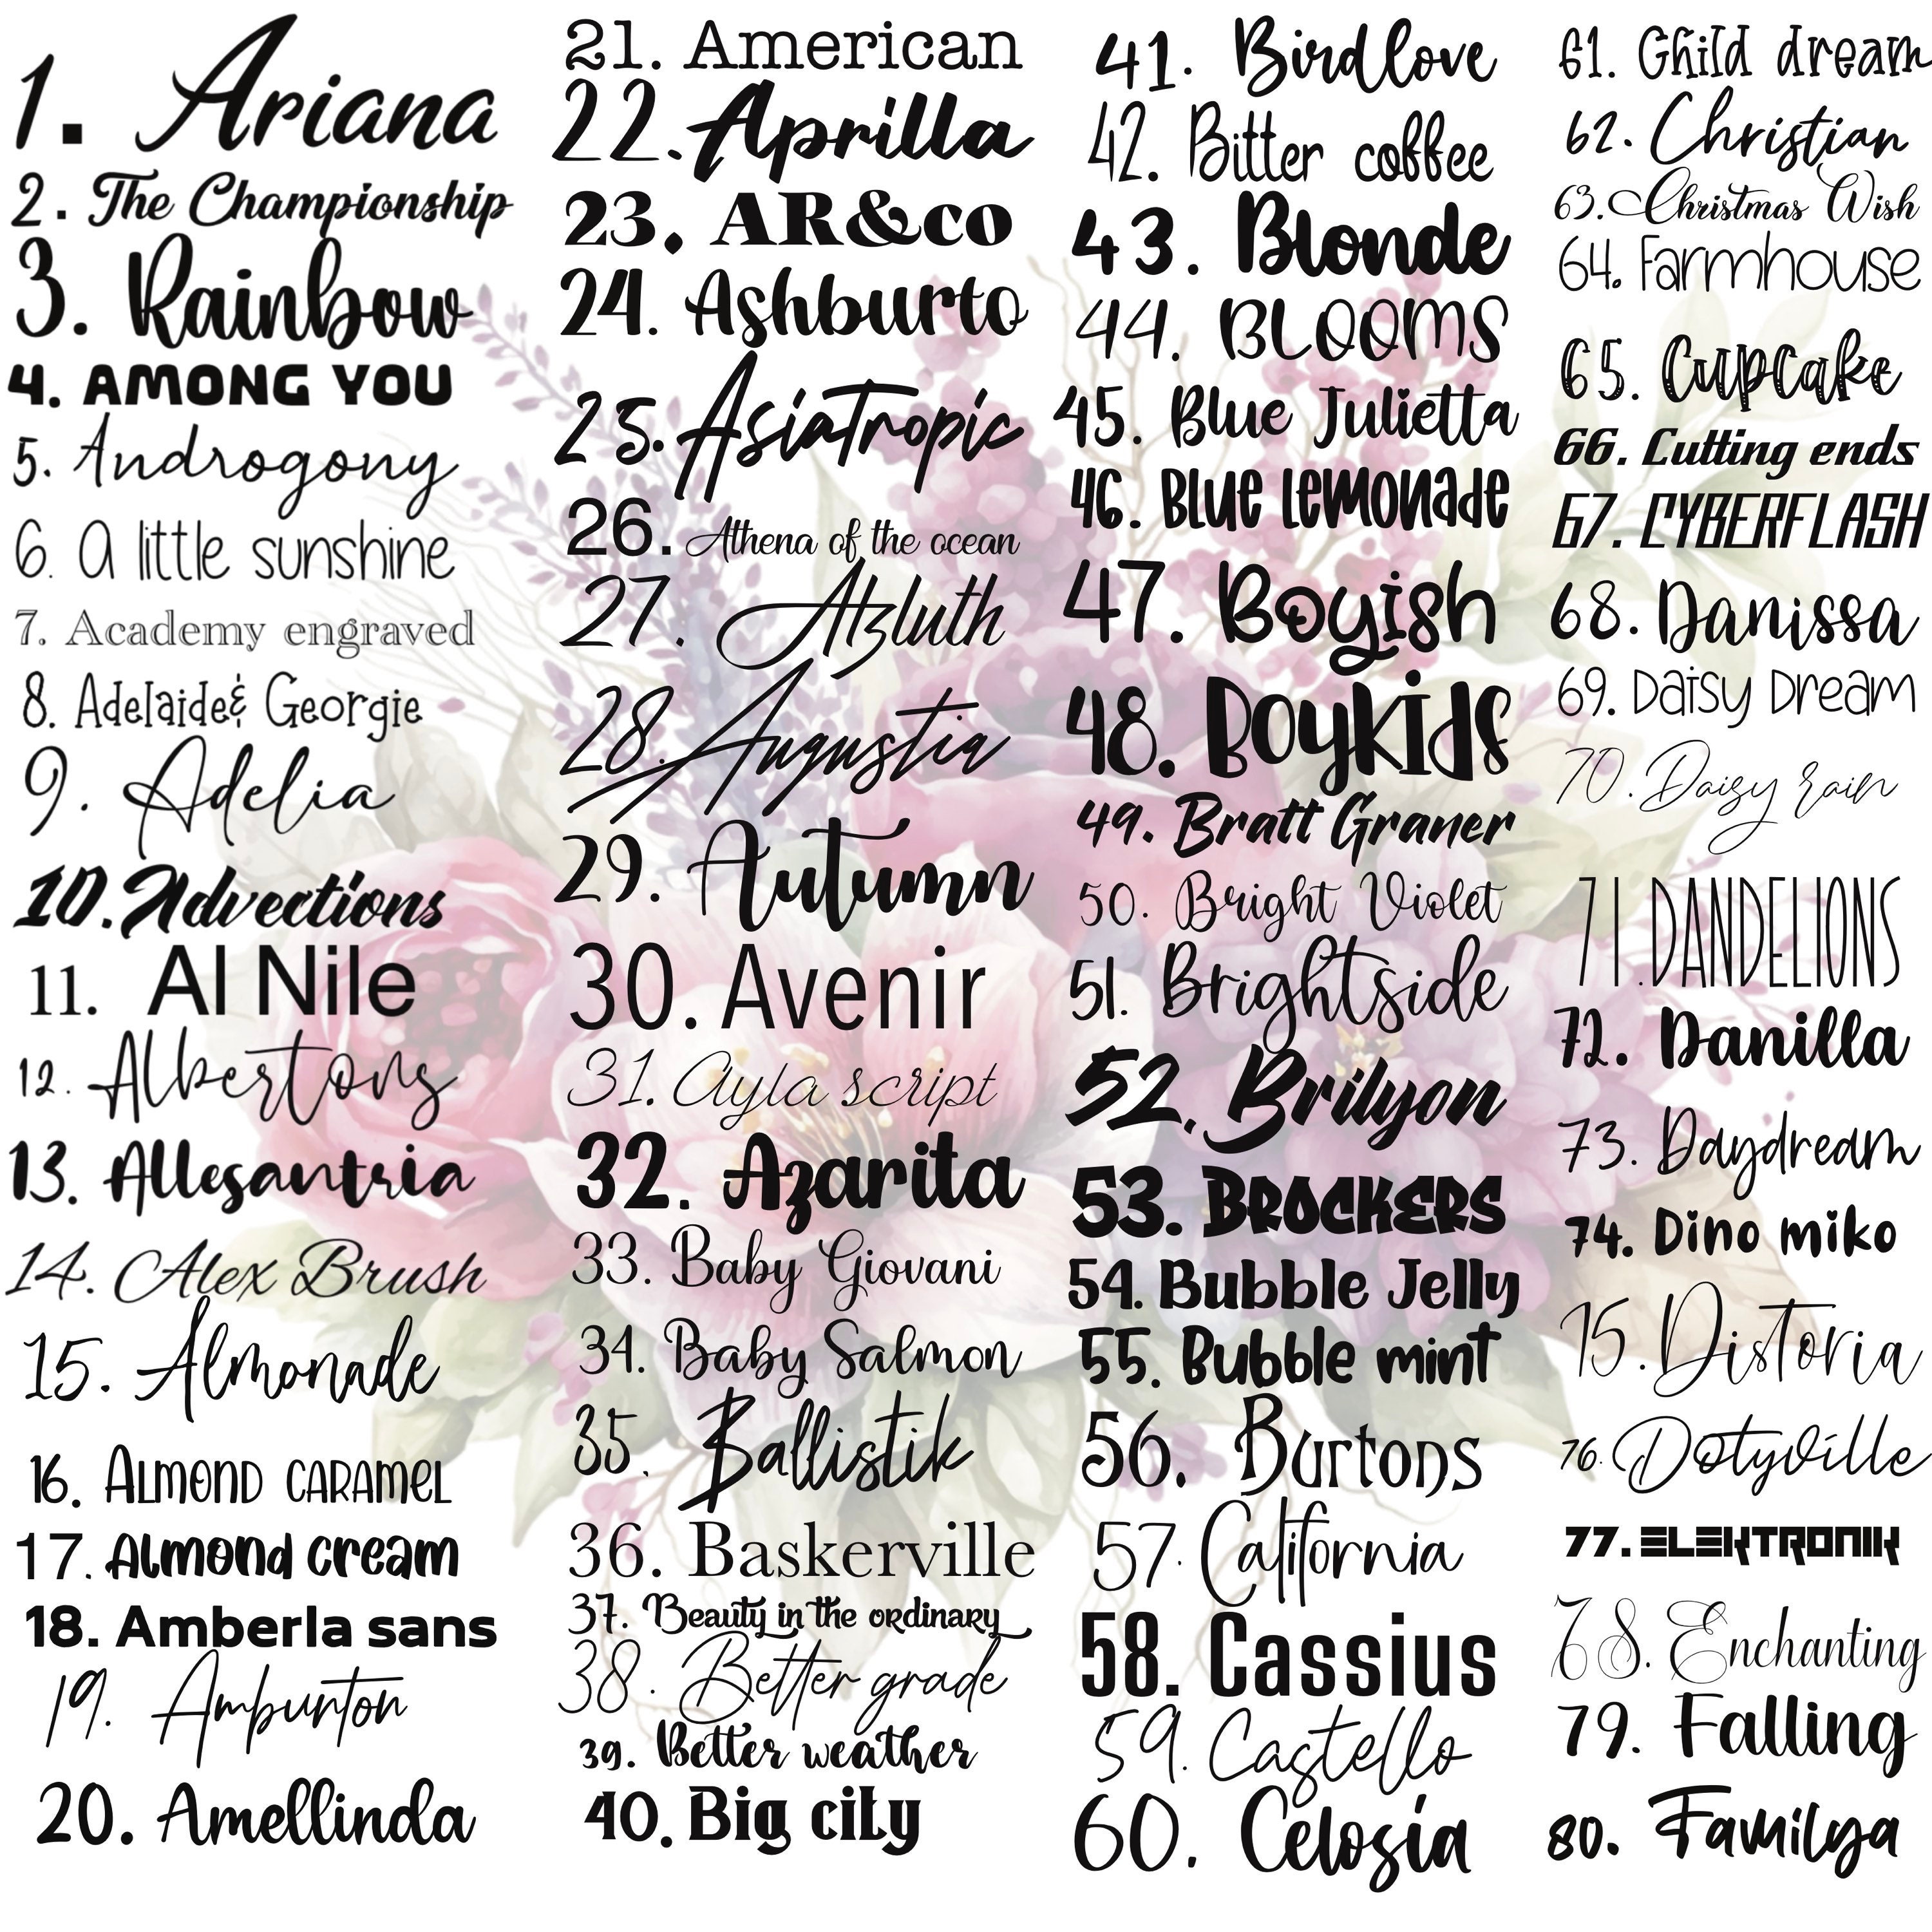 1. Ariana
2. The Championship
3. Rainbow
4. AMONG YOU
5. Androgony
6. A little sunshine
7. Academy engraved
8. Adelaide& Georgie
9. Adelia
10. Advections
11. Al Nile
12. Albertons
13. Allesantria
14. Alex Brush
15. Almonade
16. ALMOND CARAMEL
17. Almond cream
18. Amberla sans
19. Amburton
20. Amellinda
21. American
22. Aprilla
23. AR&co
24. Ashburto
25. AsiaTropic
26. Athena of the ocean
27. Atzluth
28. Augustia
29. Autumn
30. Avenir
31. Ayla script
32. Azarita
33. Baby Giovani
34. Baby Salmon
35. Ballistik
36. Baskerville
37. Beauty in the ordinary
38. Better grade
39. Better weather
40. Big city
41. Birdlove
42. Bitter coffee
43. Blonde
44. BLOOMS
45. Blue Julietta
46. Blue Lemonade
47. Boyish
48. BoyKids
49. Bratt Graner
50. Bright Violet
51. Brightside
52. Brilyon
53. BROCKERS
54. Bubble Jelly
55. Bubble mint
56. Burtons
57. California
58. Cassius
59. Castello
60. Celosia
61. Child dream
62. Christian
63. Christmas Wish
64. Farmhouse
65. Cupcake
66. Cutting ends
67. CYBERFLASH
68. Danissa
69. Daisy Dream
70. Daisy rain
71. DANDELIONS
72. Danilla
73. Daydream
74. Dino miko
75. Distoria
76. Dotyville
77. ELEKTRONIK
78. Enchanting
79. Falling
80. Familya